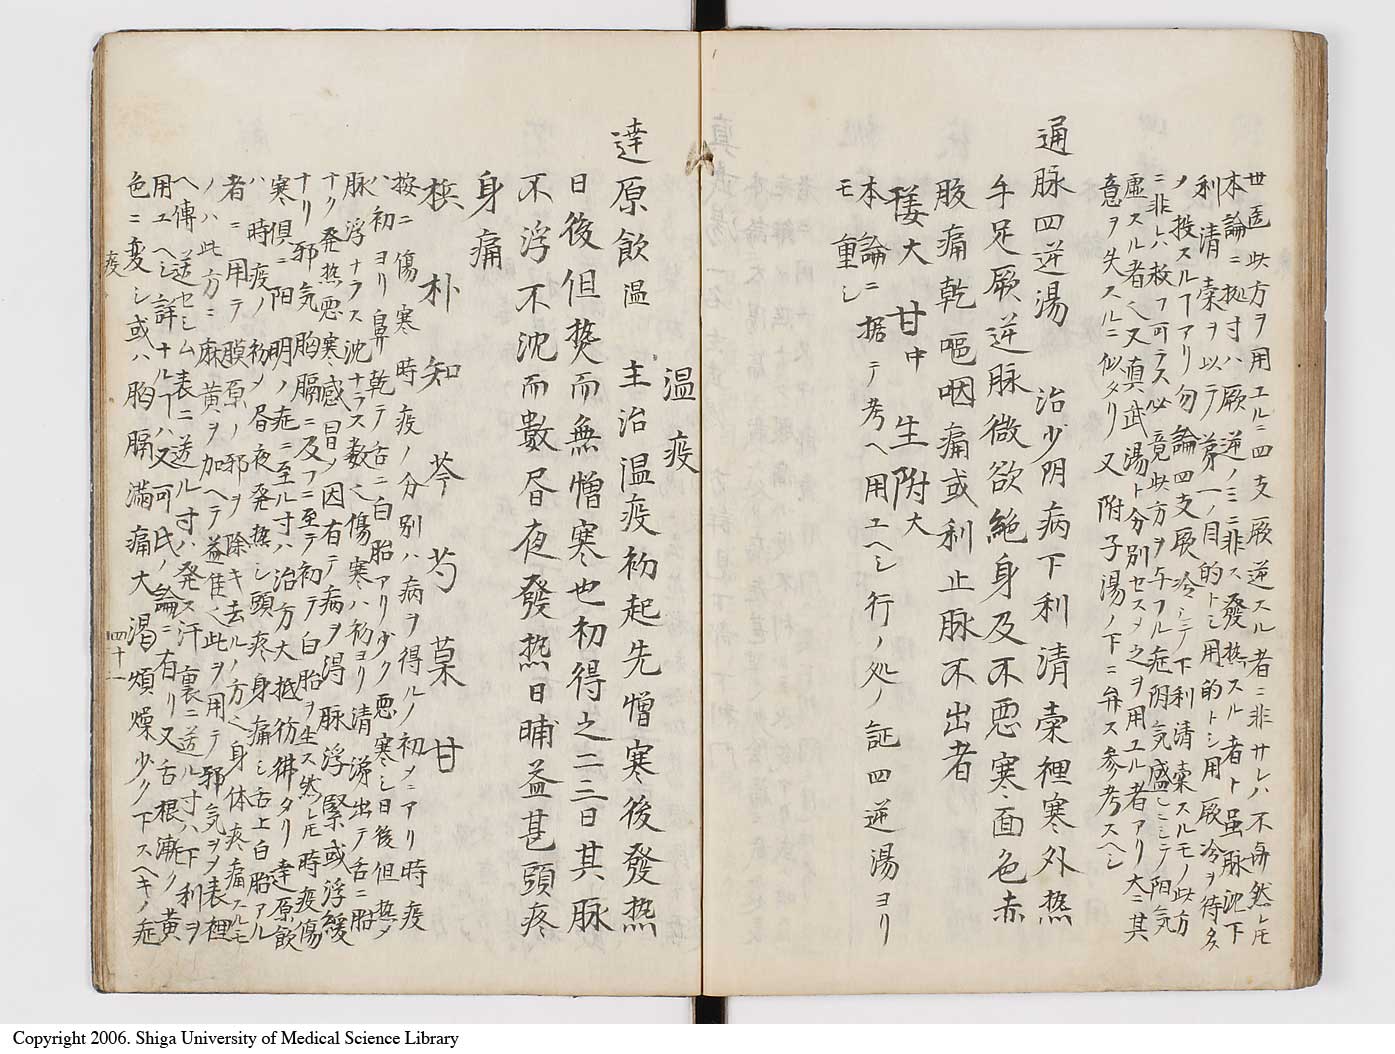 世医此方ヲ用エルニ四支厥逆スル者ニ非サレハ不毎然レ𪜈
本論ニ拠寸ハ厥逆ノミニ非ス發熱スル者ト虽脉沈下
利清槖ヲ以テ第一ノ目的トシ用的トシ用厥冷ヲ待タス
ノ投スルヿアリ勿論四支厥冷シテ下利清槖スルモノ此方
ニ非レハ救フ可ラス必竟此方ヲ与フル症阴気盛ニシテノ阳気
虚スル者也又真武湯ト分別セスメ之ヲ用エル者アリ大ニ其
意ヲ失スルニ似タリ又附子湯ノ下ニ弁ス参考スヘシ
通脉四逆湯 治少阴病下利清槖裡寒外热
手足厥逆脉微欲絶身反不悪寒面色赤
腹痛乾嘔咽痛或利止脉不出者
大 甘中 生附大
本論ニ据テ考ヘ用エヘシ行ノ処ノ証四逆湯ヨリ
モ重シ
温疫
達原飲温 主治温疫初起先憎寒後發热
日後但𤍠而無憎寒也初得之二三日其脉
不浮不沈而數昼夜發热日晡益甚頭疼
身痛
梹 朴 知 芩 芍 菓 甘
按ニ傷寒時疫ノ分別ハ病ヲ得ルノ初メニアリ時疫
ハ初ヨリ鼻乾テ舌ニ白胎アリ少ク悪寒シ日後但热メ
脉浮ナラス沈ナラス数也傷寒ハ初ヨリ清涕出テ舌ニ胎
ナク発热悪寒感冒ノ因有テ病ヲ得脉浮緊或浮緩
ナリ邪気胸膈ニ及フニ至テ初テ白胎ヲ生ス然レ𪜈時疫傷
寒倶ニ阳明ノ症ニ至ル寸ハ治方大抵彷彿タリ達原飲
ハ時疫ノ初メ昼夜発热シ頭疼身痛シ舌上白胎アル
者ニ用テ膜原ノ邪ヲ除キ去ルノ方也身体疼痛スルモ
ノハ此方ニ麻黄ヲ加ヘテ益佳也此ヲ用テ邪気ヲヲ表裡
ヘ傳送セシム表ニ送ル寸ハ発ス汗裏ニ送ル寸ハ下利ヲ
用エヘシ詳ナルヿハ又可氏ノ論ニ有リ又舌根漸ク黄
色ニ変シ或ハ胸膈滿痛大渇煩燥少ク下スヘキノ症
疫 四十一